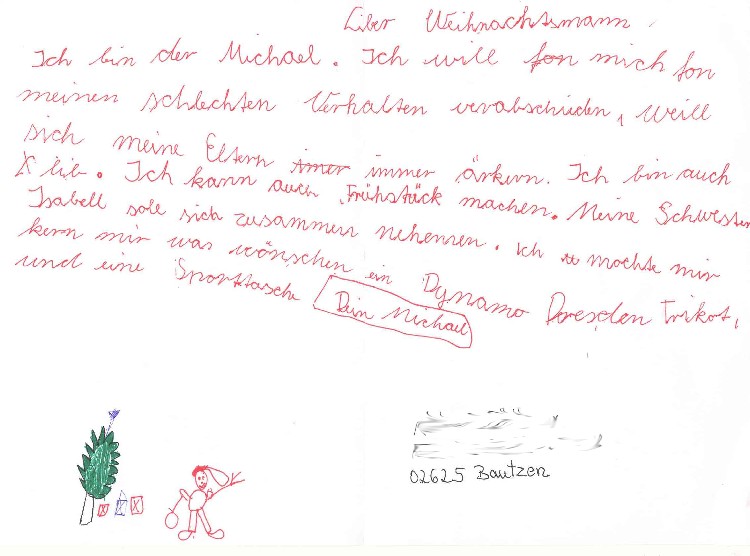 Liber Weihnachtsmann,
Ich bin der Michael. Ich will fon mich fon
meinen schlechten Verhalten verabschieden, weill
sich meine Eltern imer immer ärkern. Ich bin auch
X lib. Ich kann auch Frühstück machen. Meine Schwester
Isabell sole sich zusammen nehemen. Ich mochte mir
kern mir was wönschen ein Dynamo Dresden Trikot,
und eine Sporttasche Dein Michael
02625 Bautzen